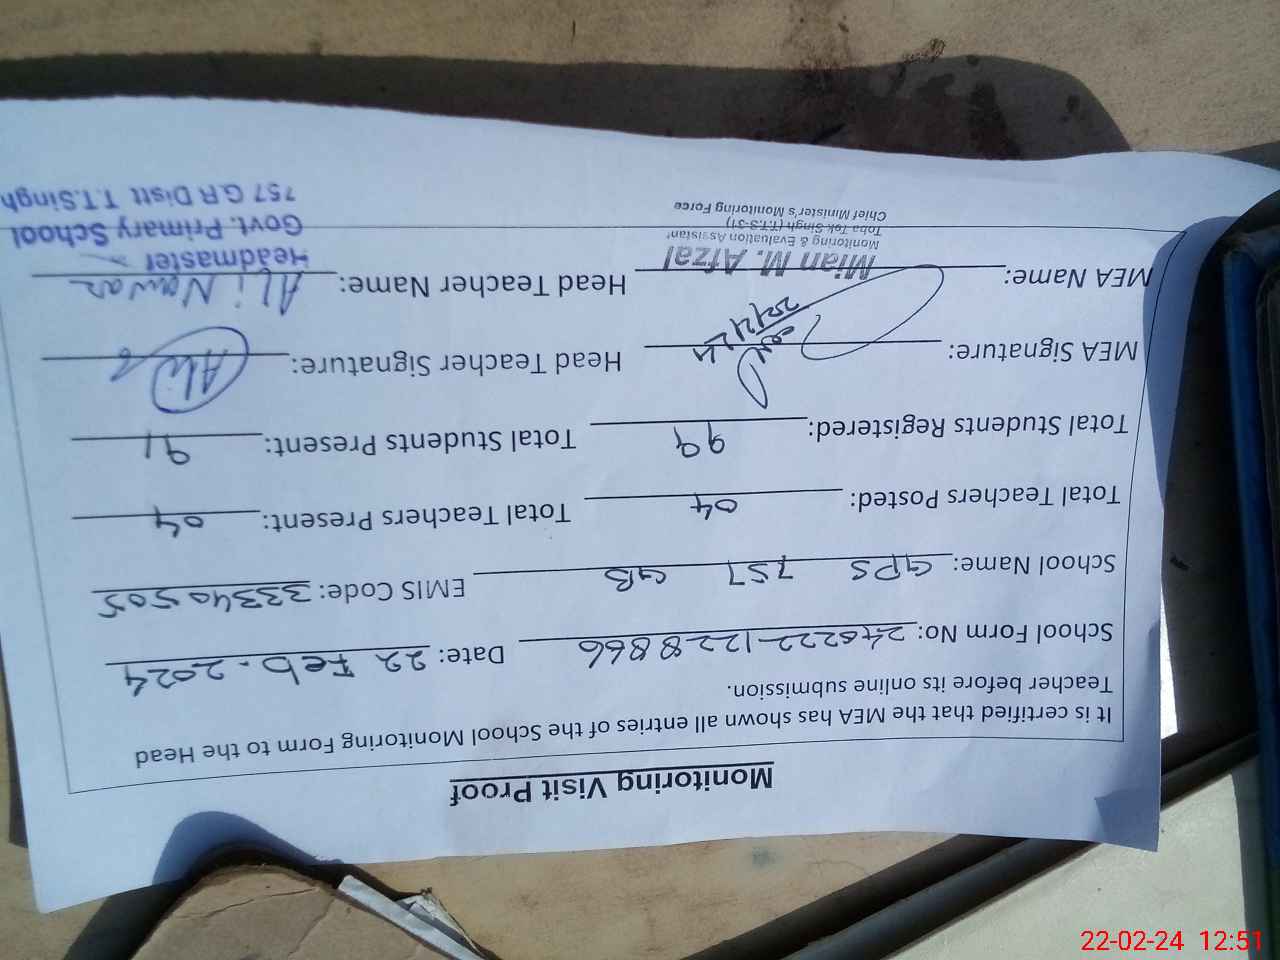 Monitoring Visit Proof
It is certified that the MEA has shown all entries of the School Monitoring Form to the Head
Teacher before its online submission.
School Form No: 240222-1228866 Date: 22 Feb. 2024
School Name: GPS 757 GB EMIS Code: 33340505
Total Teachers Posted: 04 Total Teachers Present: 04
Total Students Registered: 99 Total Students Present: 91
MEA Signature: Head Teacher Signature: Ali
MEA Name: Mian M. Afzal Head Teacher Name: Ali Nawaz
Monitoring & Evaluation Assistant
Toba Tek Singh (T.T.S-31)
Chief Minister's Monitoring Force
Headmaster
Govt. Primary School
757 G.R Distt T.T.Singh
22-02-24 12:51